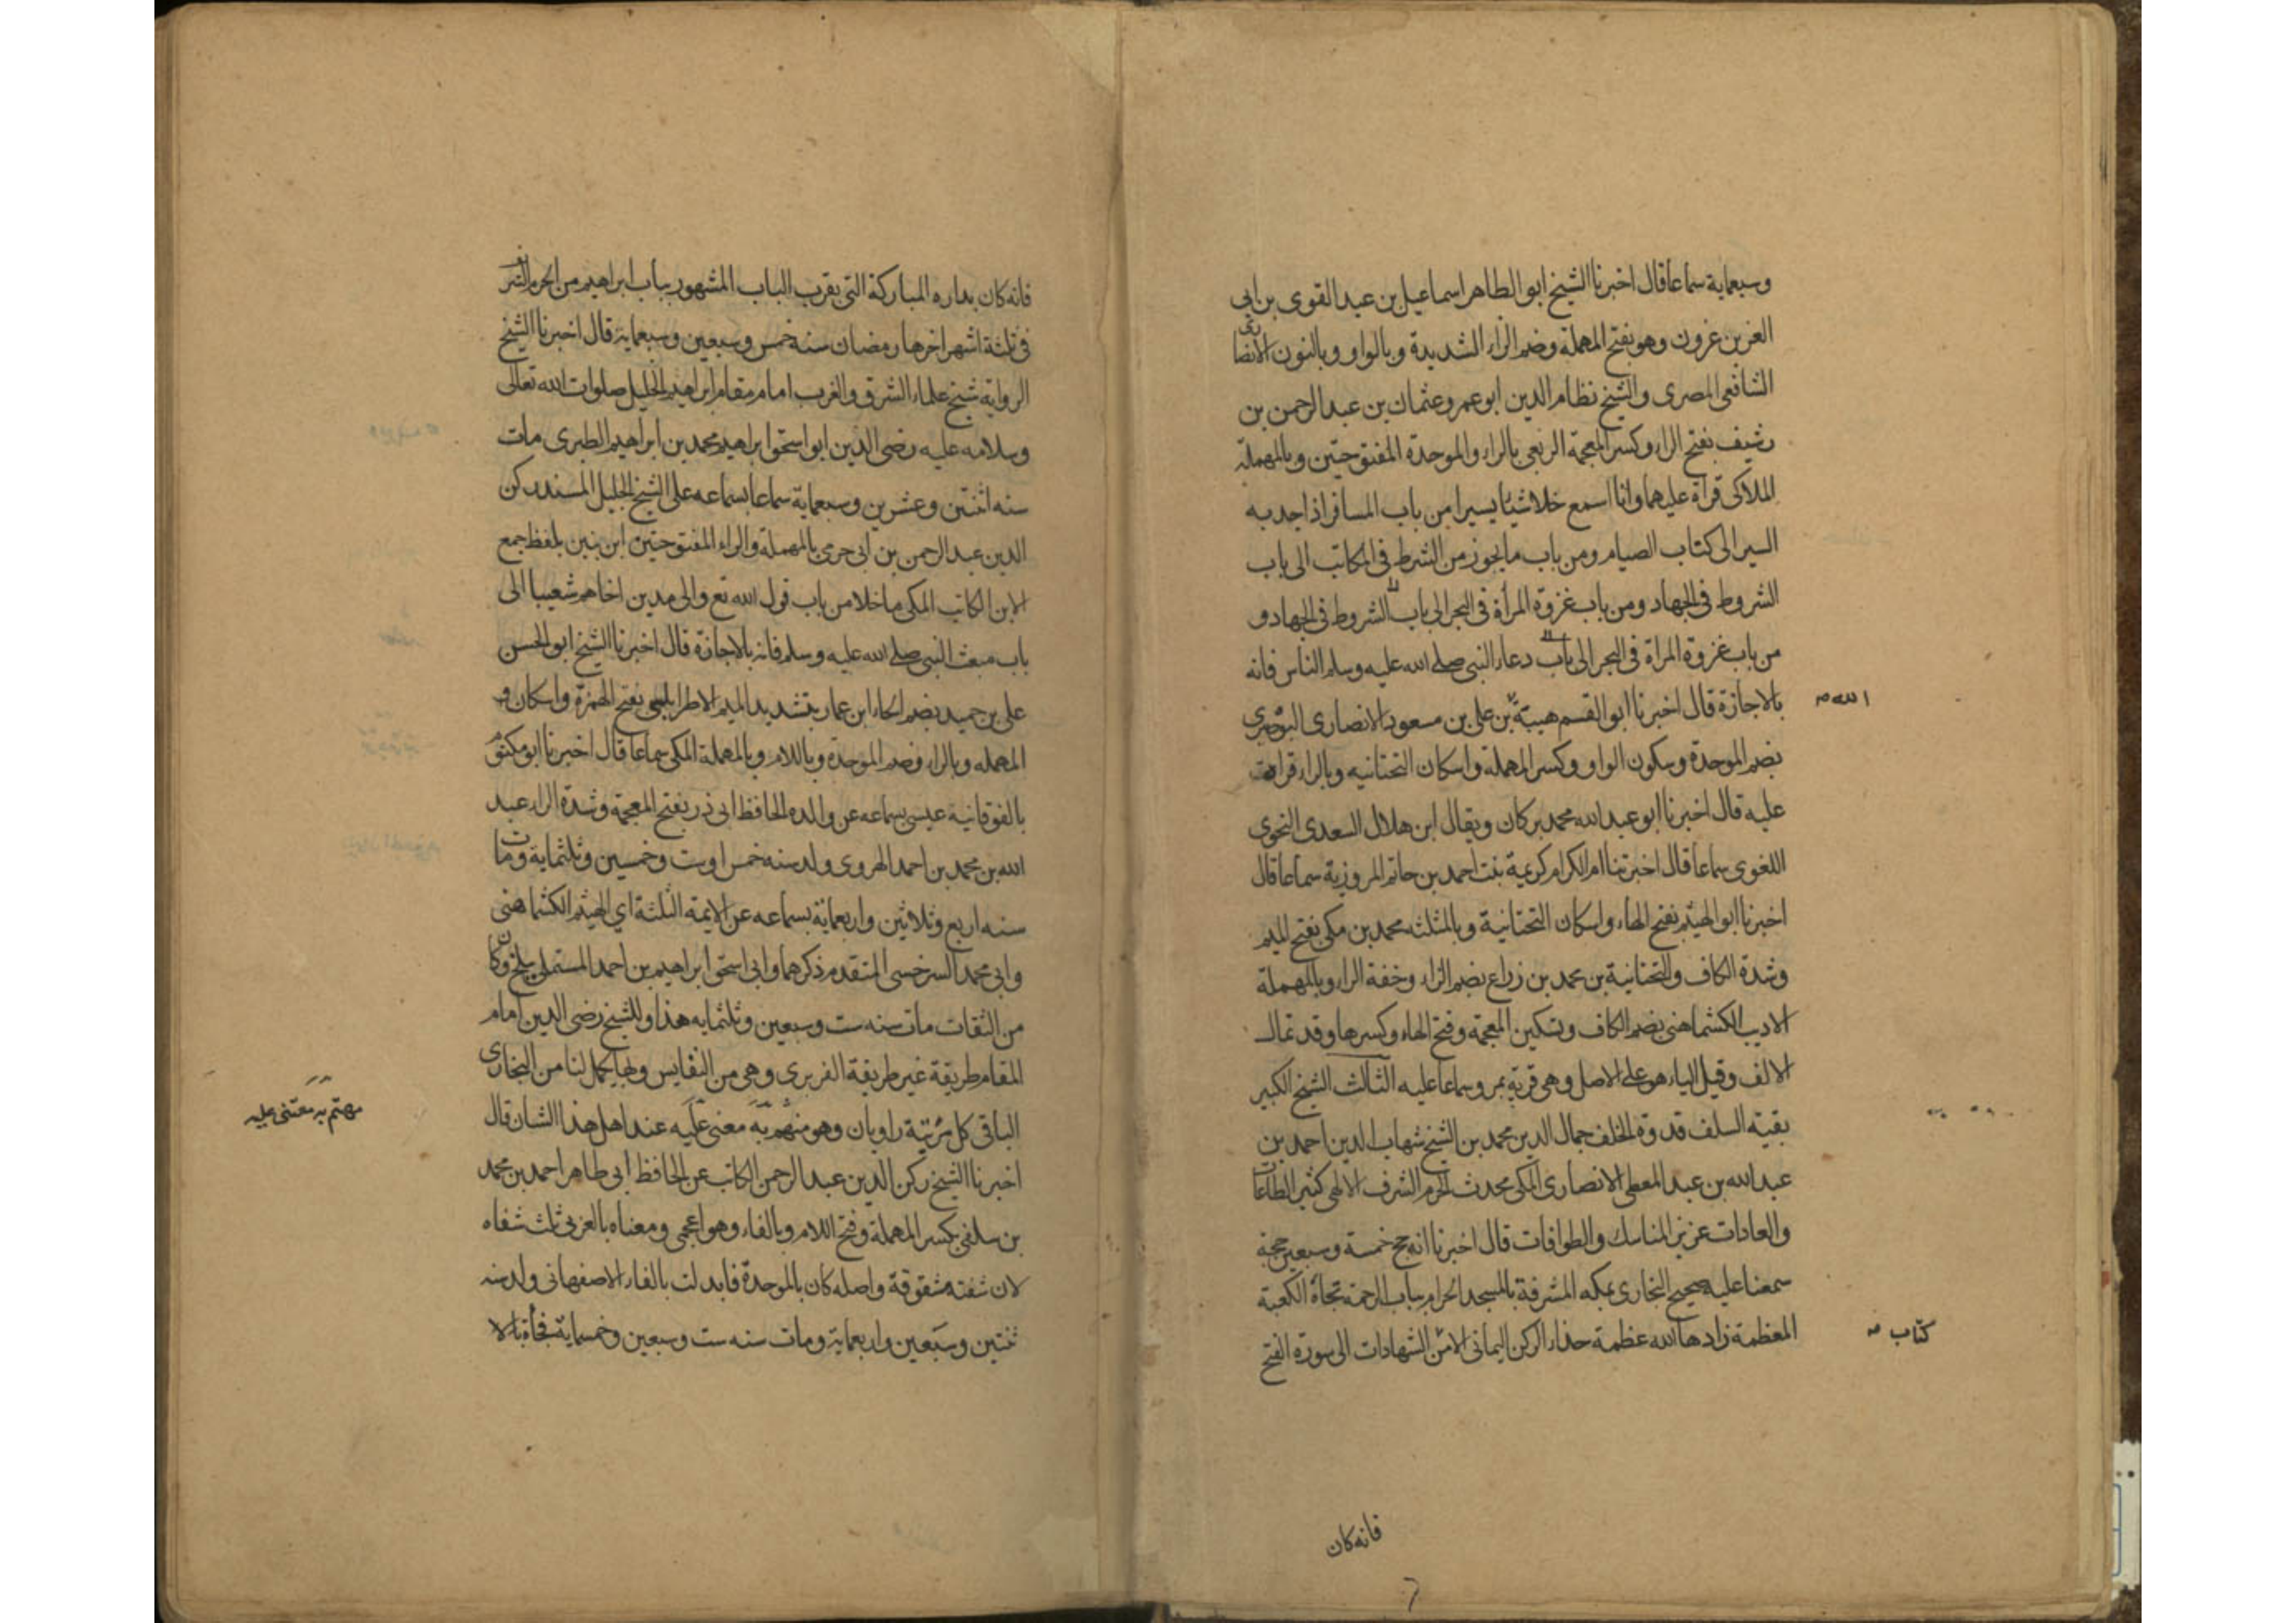 وسبعماية سماعا قال اخبرنا الشيخ ابو الطاهر اسماعيل بن عبد القوى بن ابى
العز بن عزون وهو بفتح المهملة وضم الزاء الشديدة وبالواو وبالنون الانصارى
الشافعى المصرى والشيخ نظام الدين ابو عمرو عثمان بن عبد الرحمن بن
رشيف بفتح الراء وكسر المعجمة الربعى بالراء والموحدة المفتوحتين وبالمهملة
الملاكى قراة عليهما وانا اسمع خلا شيئا يسيرا من باب المسافر اذا جد به
السير الى كتاب الصيام ومن باب ما يجوز من الشرط فى المكاتب الى باب
الشروط فى الجهاد ومن باب غزوة المرأة فى البحر الى باب الشروط فى الجهاد و
من باب غزوة المراة فى البحر الى باب دعاء النبى صلى الله عليه وسلم الناس فانه
بالاجازة قال اخبرنا ابو القسم هبة بن على بن مسعود الانصارى البوصيرى
الله صح
بضم الموحدة وسكون الواو وكسر المهملة واسكان التحتانيه وبالراء قراءة
عليه قال اخبرنا ابو عبد الله محمد بركان ويقال ابن هلال السعدى النحوى
اللغوى سماعا قال اخبرتنا ام الكرام كريمة بنت احمد بن حاتم المروزية سماعا قال
اخبرنا ابو الهيثم بفتح الهاء واسكان التحتانية وبالمثلثه محمد بن مكى بفتح الميم
وشدة الكاف والتحتانية بن محمد بن زراع بضم الزاء وخفة الراء وبالمهملة
الاديب الكشماهنى بضم الكاف وتسكين المعجمة وفتح الهاء وكسرها وقد تمال
الالف وقيل الياء هو على الاصل وهى قرية بمرو سماعا عليه الثالث الشيخ الكبير
بقية السلف قدوة الخلف جمال الدين محمد بن الشيخ شهاب الدين احمد بن
عبد الله بن عبد المعطى الانصارى المكى محدث الحرم الشرف الالهى كثير الطاعات
والعادات عزيز المناسك والطوافات قال اخبرنا انه حج خمسة وسبعين حجة
سمعنا عليه صحيح البخارى بمكه المشرفة بالمسجد الحرام بباب الرحمة تجاة الكعبة
المعظمة زادها الله عظمة حذاء الركن اليمانى الا من الشهادات الى سورة الفتح
كتاب صح
فانه كان
فانه كان بداره المباركة التى بقرب الباب المشهور بباب ابراهيم من الحرم الشريف
فى ثلثة اشهر اخرها رمضان سنه خمس وسبعين وسبعماية قال اخبرنا الشيخ
الرواية شيخ علماء الشرق والغرب امام مقام ابراهيم الخليل صلوات الله تعالى
وسلامه عليه رضى الدين ابو اسحق ابراهيم محمد بن ابراهيم الطبرى مات
سنه اثنتين وعشرين وسبعماية سماعا بسماعه على الشيخ الجليل المسند ركن
الدين عبد الرحمن بن ابى حرمى بالمهملة والراء المفتوحتين ابن بنين بلفظ جمع
الابن الكاتب المكى ما خلا من باب قول الله تع والى مدين اخاهم شعيبا الى
باب مبعث النبى صلى الله عليه وسلم فانه بالاجازة قال اخبرنا الشيخ ابو الحسن
على بن حميد بضم الحاء ابن عمار بتشديد الميم الاطرابلسى بفتح الهمزة واسكان و
المهمله وبالراء وضم الموحدة وباللام وبالمهملة المكى سماعا قال اخبرنا ابو مكتوم
بالفوقانية عيسى بسماعه عن والده الحافظ ابى ذر بفتح المعجمة وشدة الراء عبد
الله بن محمد بن احمد الهروى ولد سنه خمس اوست وخمسين وثلثماية ومات
سنه اربع وثلاثين واربعماية بسماعه عن الايمة الثلثة اى الهيثم الكشماهنى
وابى محمد السرخسى المتقدم ذكرهما وابى اسحق ابراهيم بن احمد المستملى ببلخ وكان
من الثقات مات سنه ست وسبعين وثلثمايه هذا وللشيخ رضى الدين امام
المقام طريقة غير طريقة الفربرى وهى من النفايس ولها يكمل لنا من البخارى
الباقى كل مرتبة راويان وهو منهم به معنى عليه عند اهل هذا الشان قال
مهتم به معتنى عليه
اخبرنا الشيخ ركن الدين عبد الرحمن الكاتب عن الحافظ ابى طاهر احمد بن محمد
بن سلفى بكسر المهملة وفتح اللام وبالفاء وهو اعجمى ومعناه بالعربى ثلث شفاه
لان شفته مشقوقة واصله كان بالموحدة فابدلت بالفاء الاصفهانى ولد سنه
ثنتين وسبعين واربعماية ومات سنه ست وسبعين وخمسماية فجأة بالا